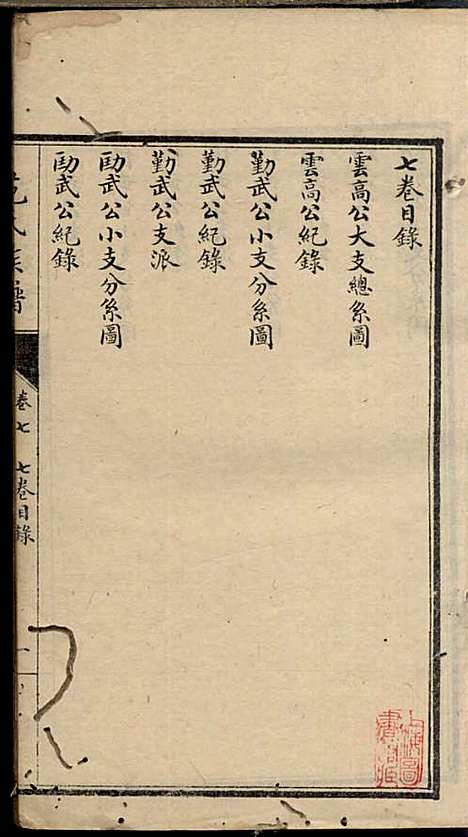 七卷目錄
雲高公大支總系圖
雲高公紀錄
勤武公小支分系圖
勤武公紀錄
勤武公支派
劻武公小支分系圖
劻武公紀錄
氏族譜
卷七 七卷目錄